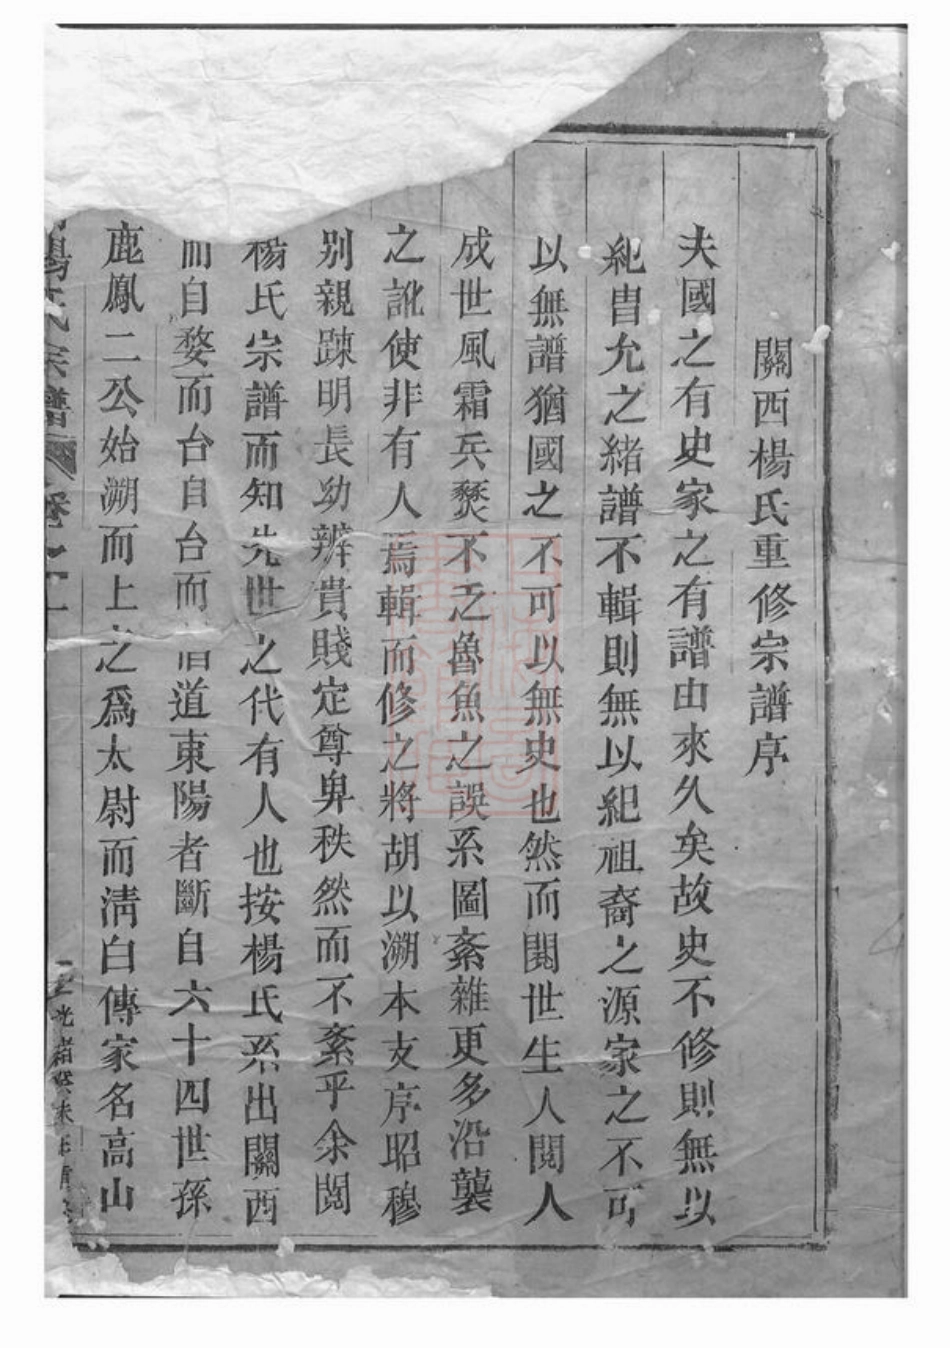 關西楊氏重修宗譜序
夫國之有史家之有譜由來久矣故史不修則無以
紀胄允之緒譜不輯則無以紀祖裔之源家之不可
以無譜猶國之不可以無史也然而閱世生人閱人
成世風霜兵燹不乏魯魚之誤系圖紊雜更多沿襲
之訛使非有人焉輯而修之將胡以溯本支序昭穆
别親踈明長幼辨貴賤定尊卑秩然而不紊乎余閱
楊氏宗譜而知先世之代有人也按楊氏系出關西
而自婺而台自台而道東陽者斷自六十四世孫
鹿鳳二公始溯而上之爲太尉而淸白傳家名高山
楊氏宗譜 卷之一
光緒癸未年重修